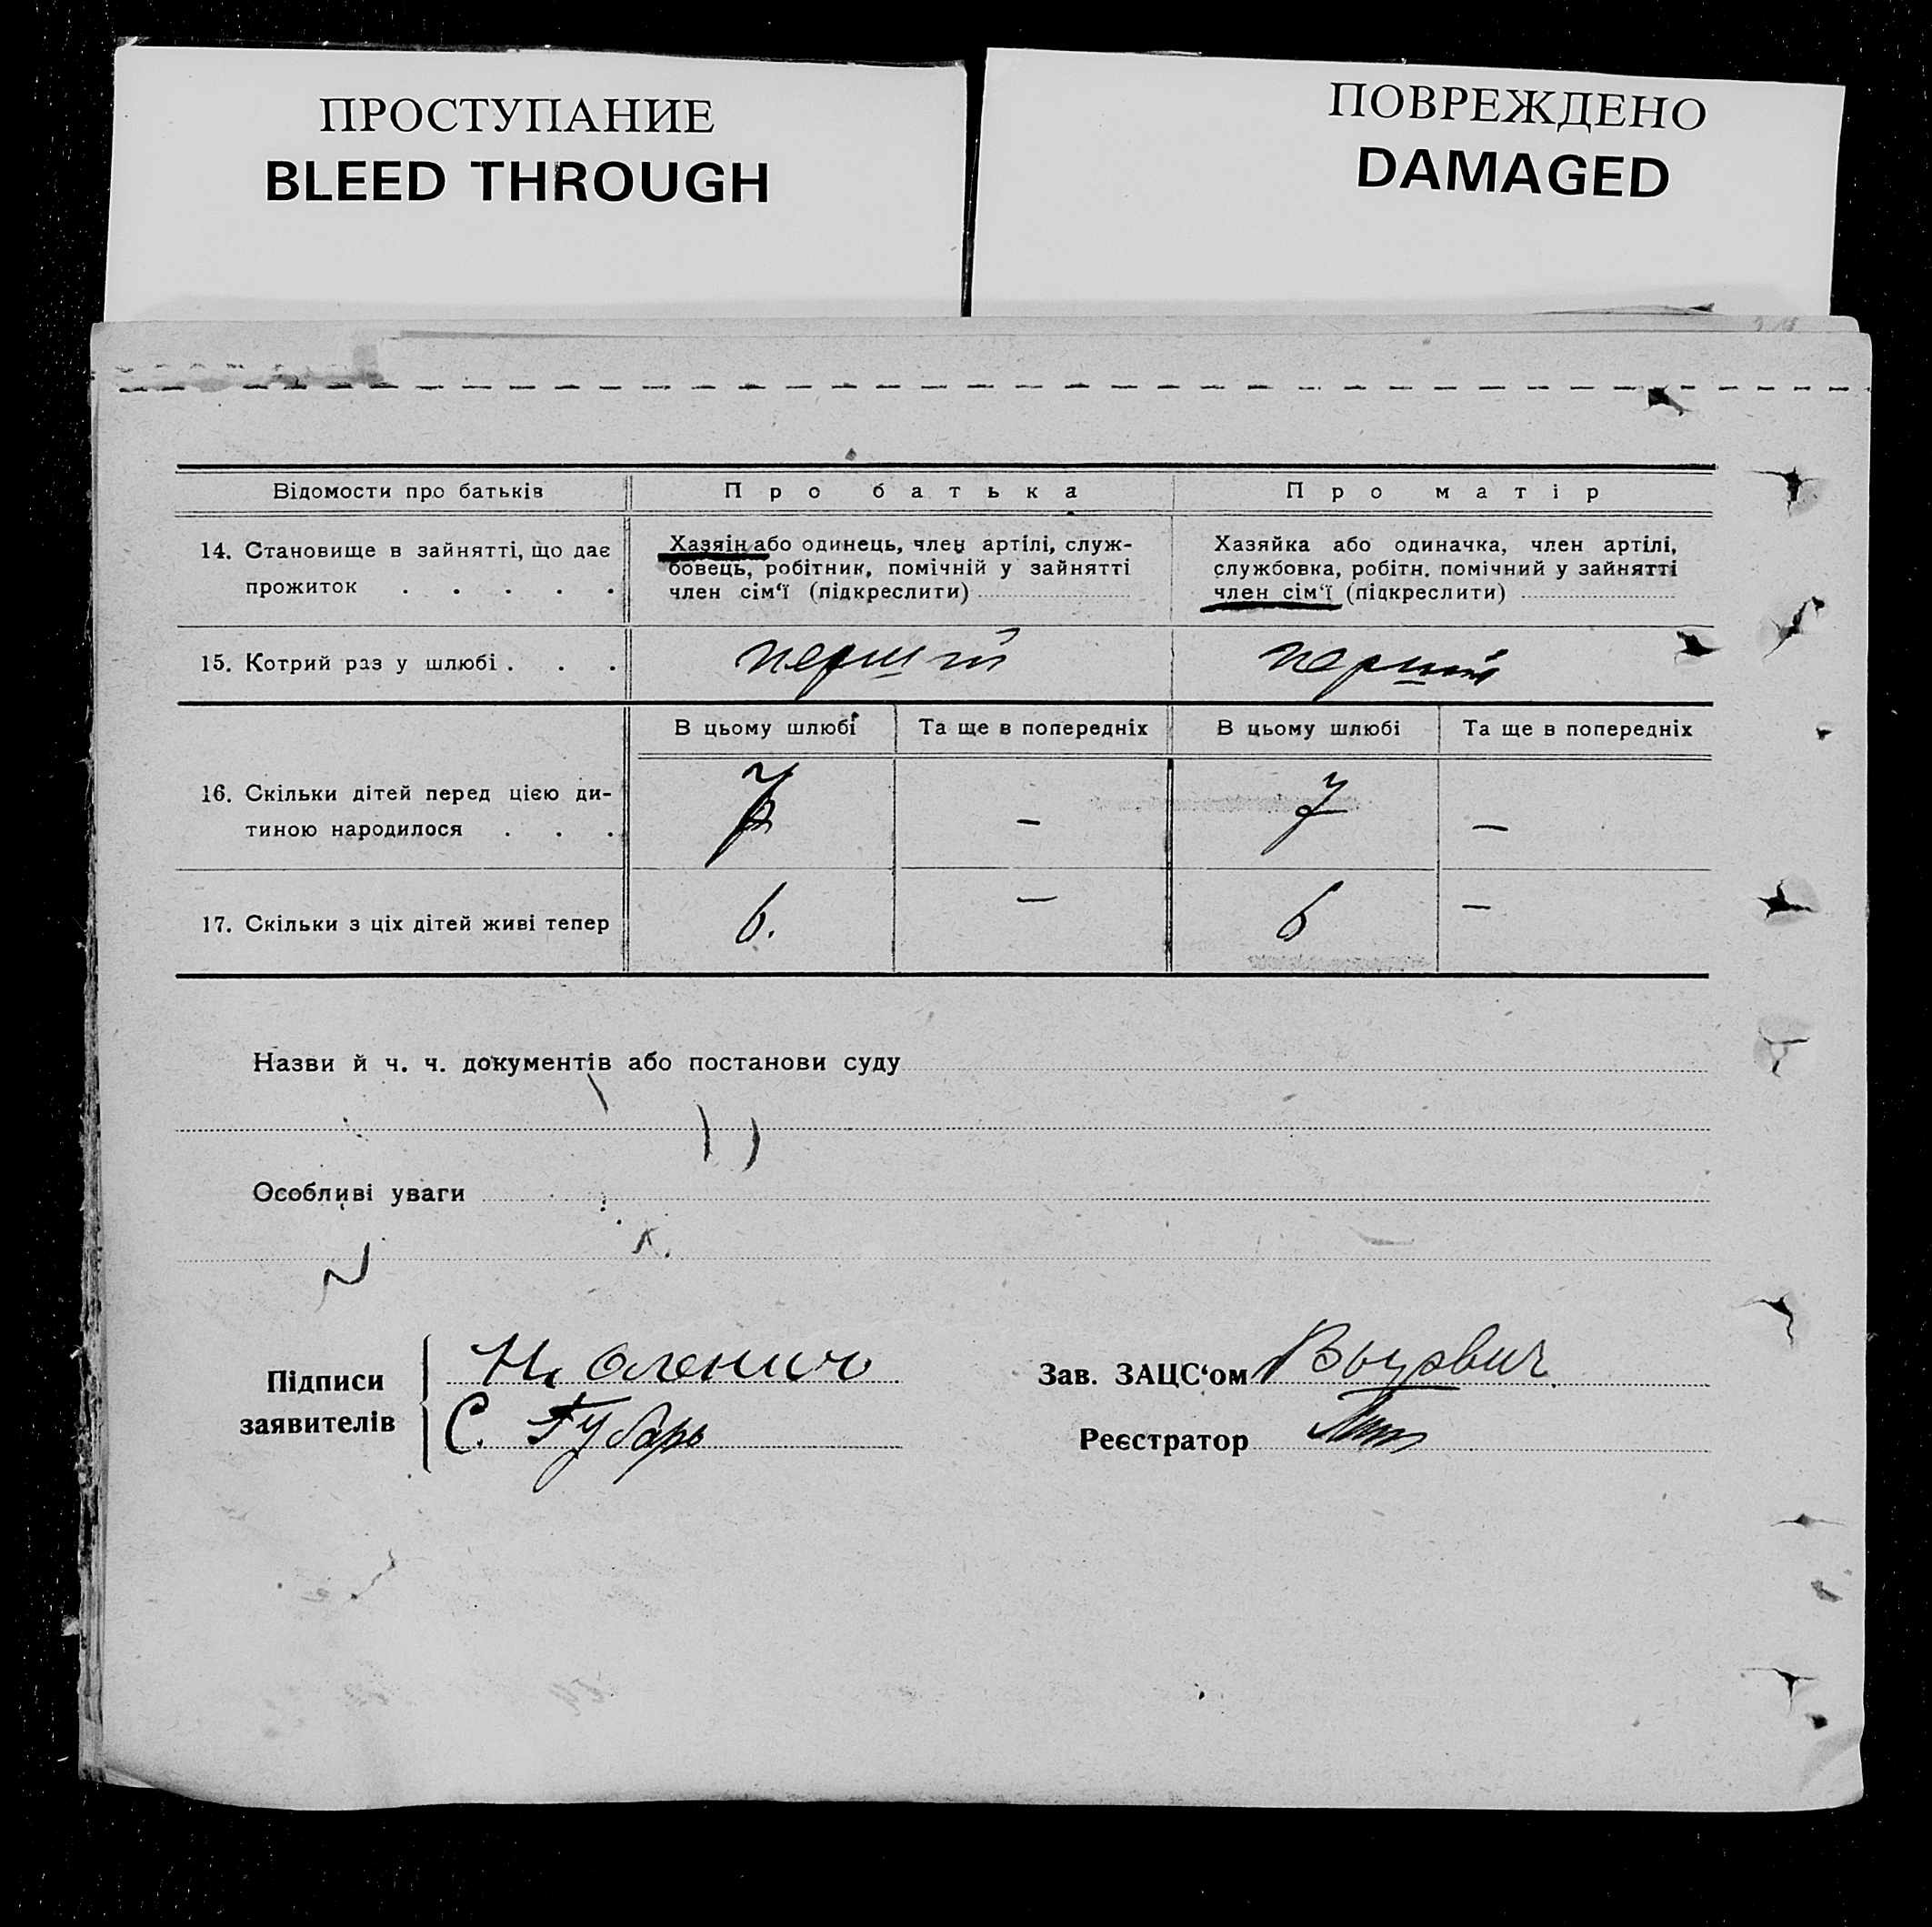 ПРОСТУПАНИЕ
BLEED THROUGH
ПОВРЕЖДЕНО
DAMAGED
Відомости про батьків Про батька Про матір
14. Становище в зайнятті, що дає
прожиток . . . . .
Хазяїн або одинець, член артілі, служ-
бовець, робітник, помічній у зайнятті
член сім'ї (підкреслити)
Хазяйка або одиначка, член артілі,
службовка, робітн. помічний у зайнятті
член сім'ї (підкреслити)
15. Котрий раз у шлюбі . . . перший перший
В цьому шлюбі Та ще в попередніх В цьому шлюбі Та ще в попередніх
16. Скільки дітей перед цією ди-
тиною народилося . . . 7 – 7 –
17. Скільки з ціх дітей живі тепер 6. – 6 –
Назви й ч. ч. документів або постанови суду
Особливі уваги
Підписи
заявителів
С. Губарь
Зав. ЗАЦС'ом
Реєстратор